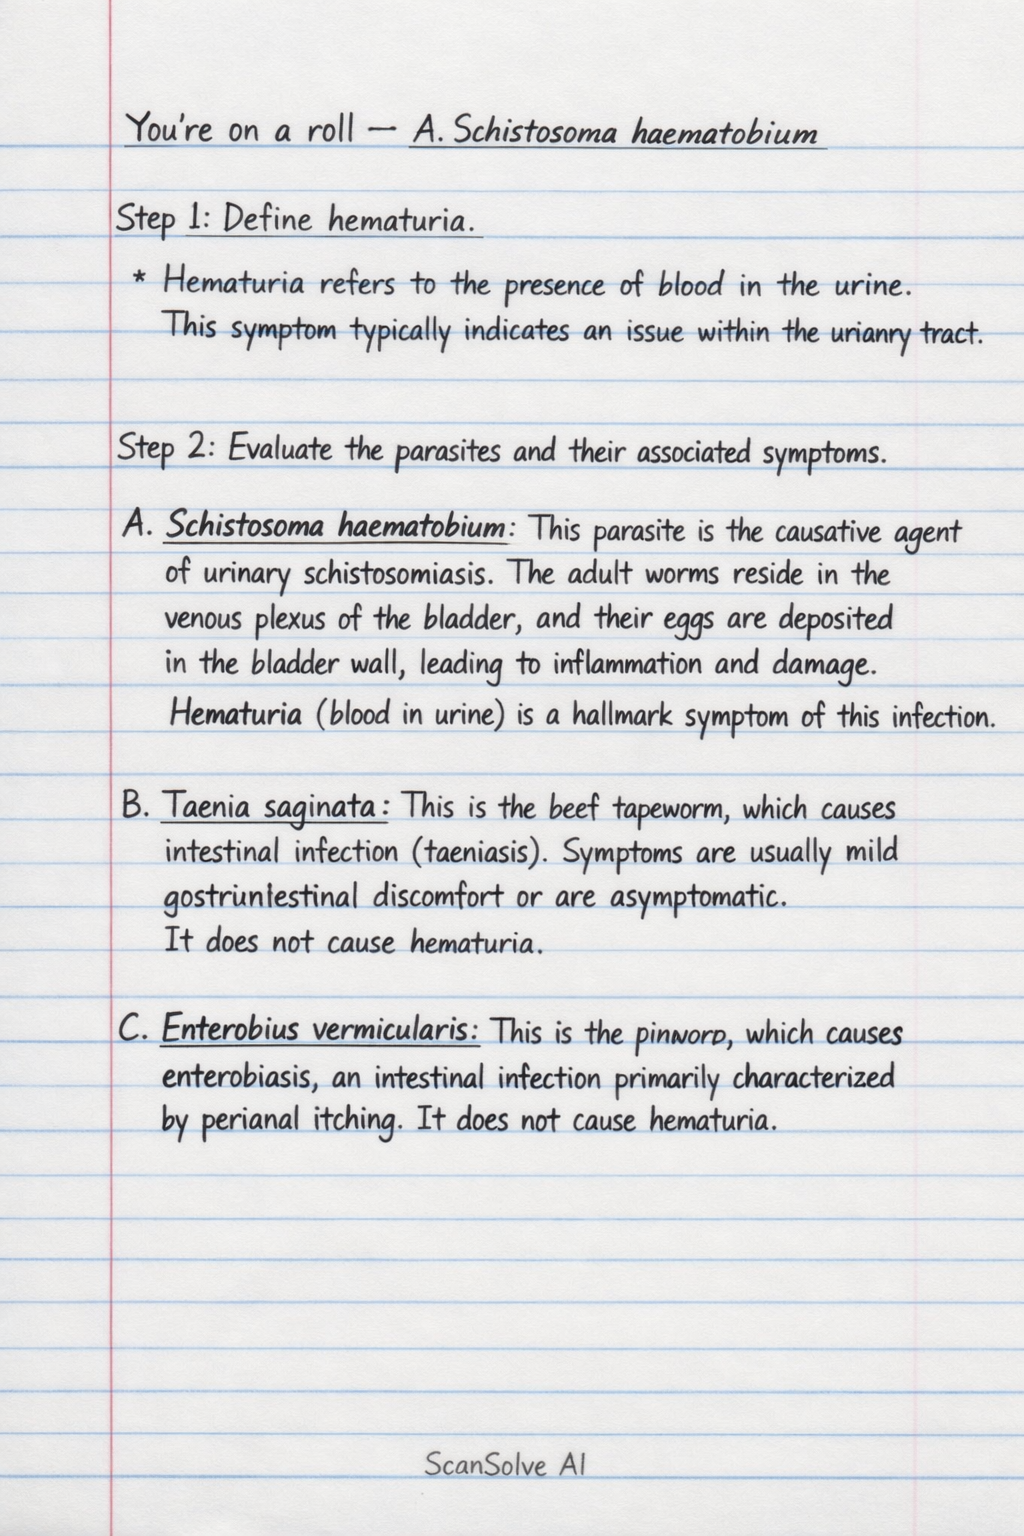 You're on a roll — A. Schistosoma haematobium
Step 1: Define hematuria.
* Hematuria refers to the presence of blood in the urine.
This symptom typically indicates an issue within the urianry tract.
Step 2: Evaluate the parasites and their associated symptoms.
A. Schistosoma haematobium: This parasite is the causative agent
of urinary schistosomiasis. The adult worms reside in the
venous plexus of the bladder, and their eggs are deposited
in the bladder wall, leading to inflammation and damage.
Hematuria (blood in urine) is a hallmark symptom of this infection.
B. Taenia saginata: This is the beef tapeworm, which causes
intestinal infection (taeniasis). Symptoms are usually mild
discomfort or are asymptomatic.
It does not cause hematuria.
C. Enterobius vermicularis: This is the which causes
enterobiasis, an intestinal infection primarily characterized
by perianal itching. It does not cause hematuria.
ScanSolve AI